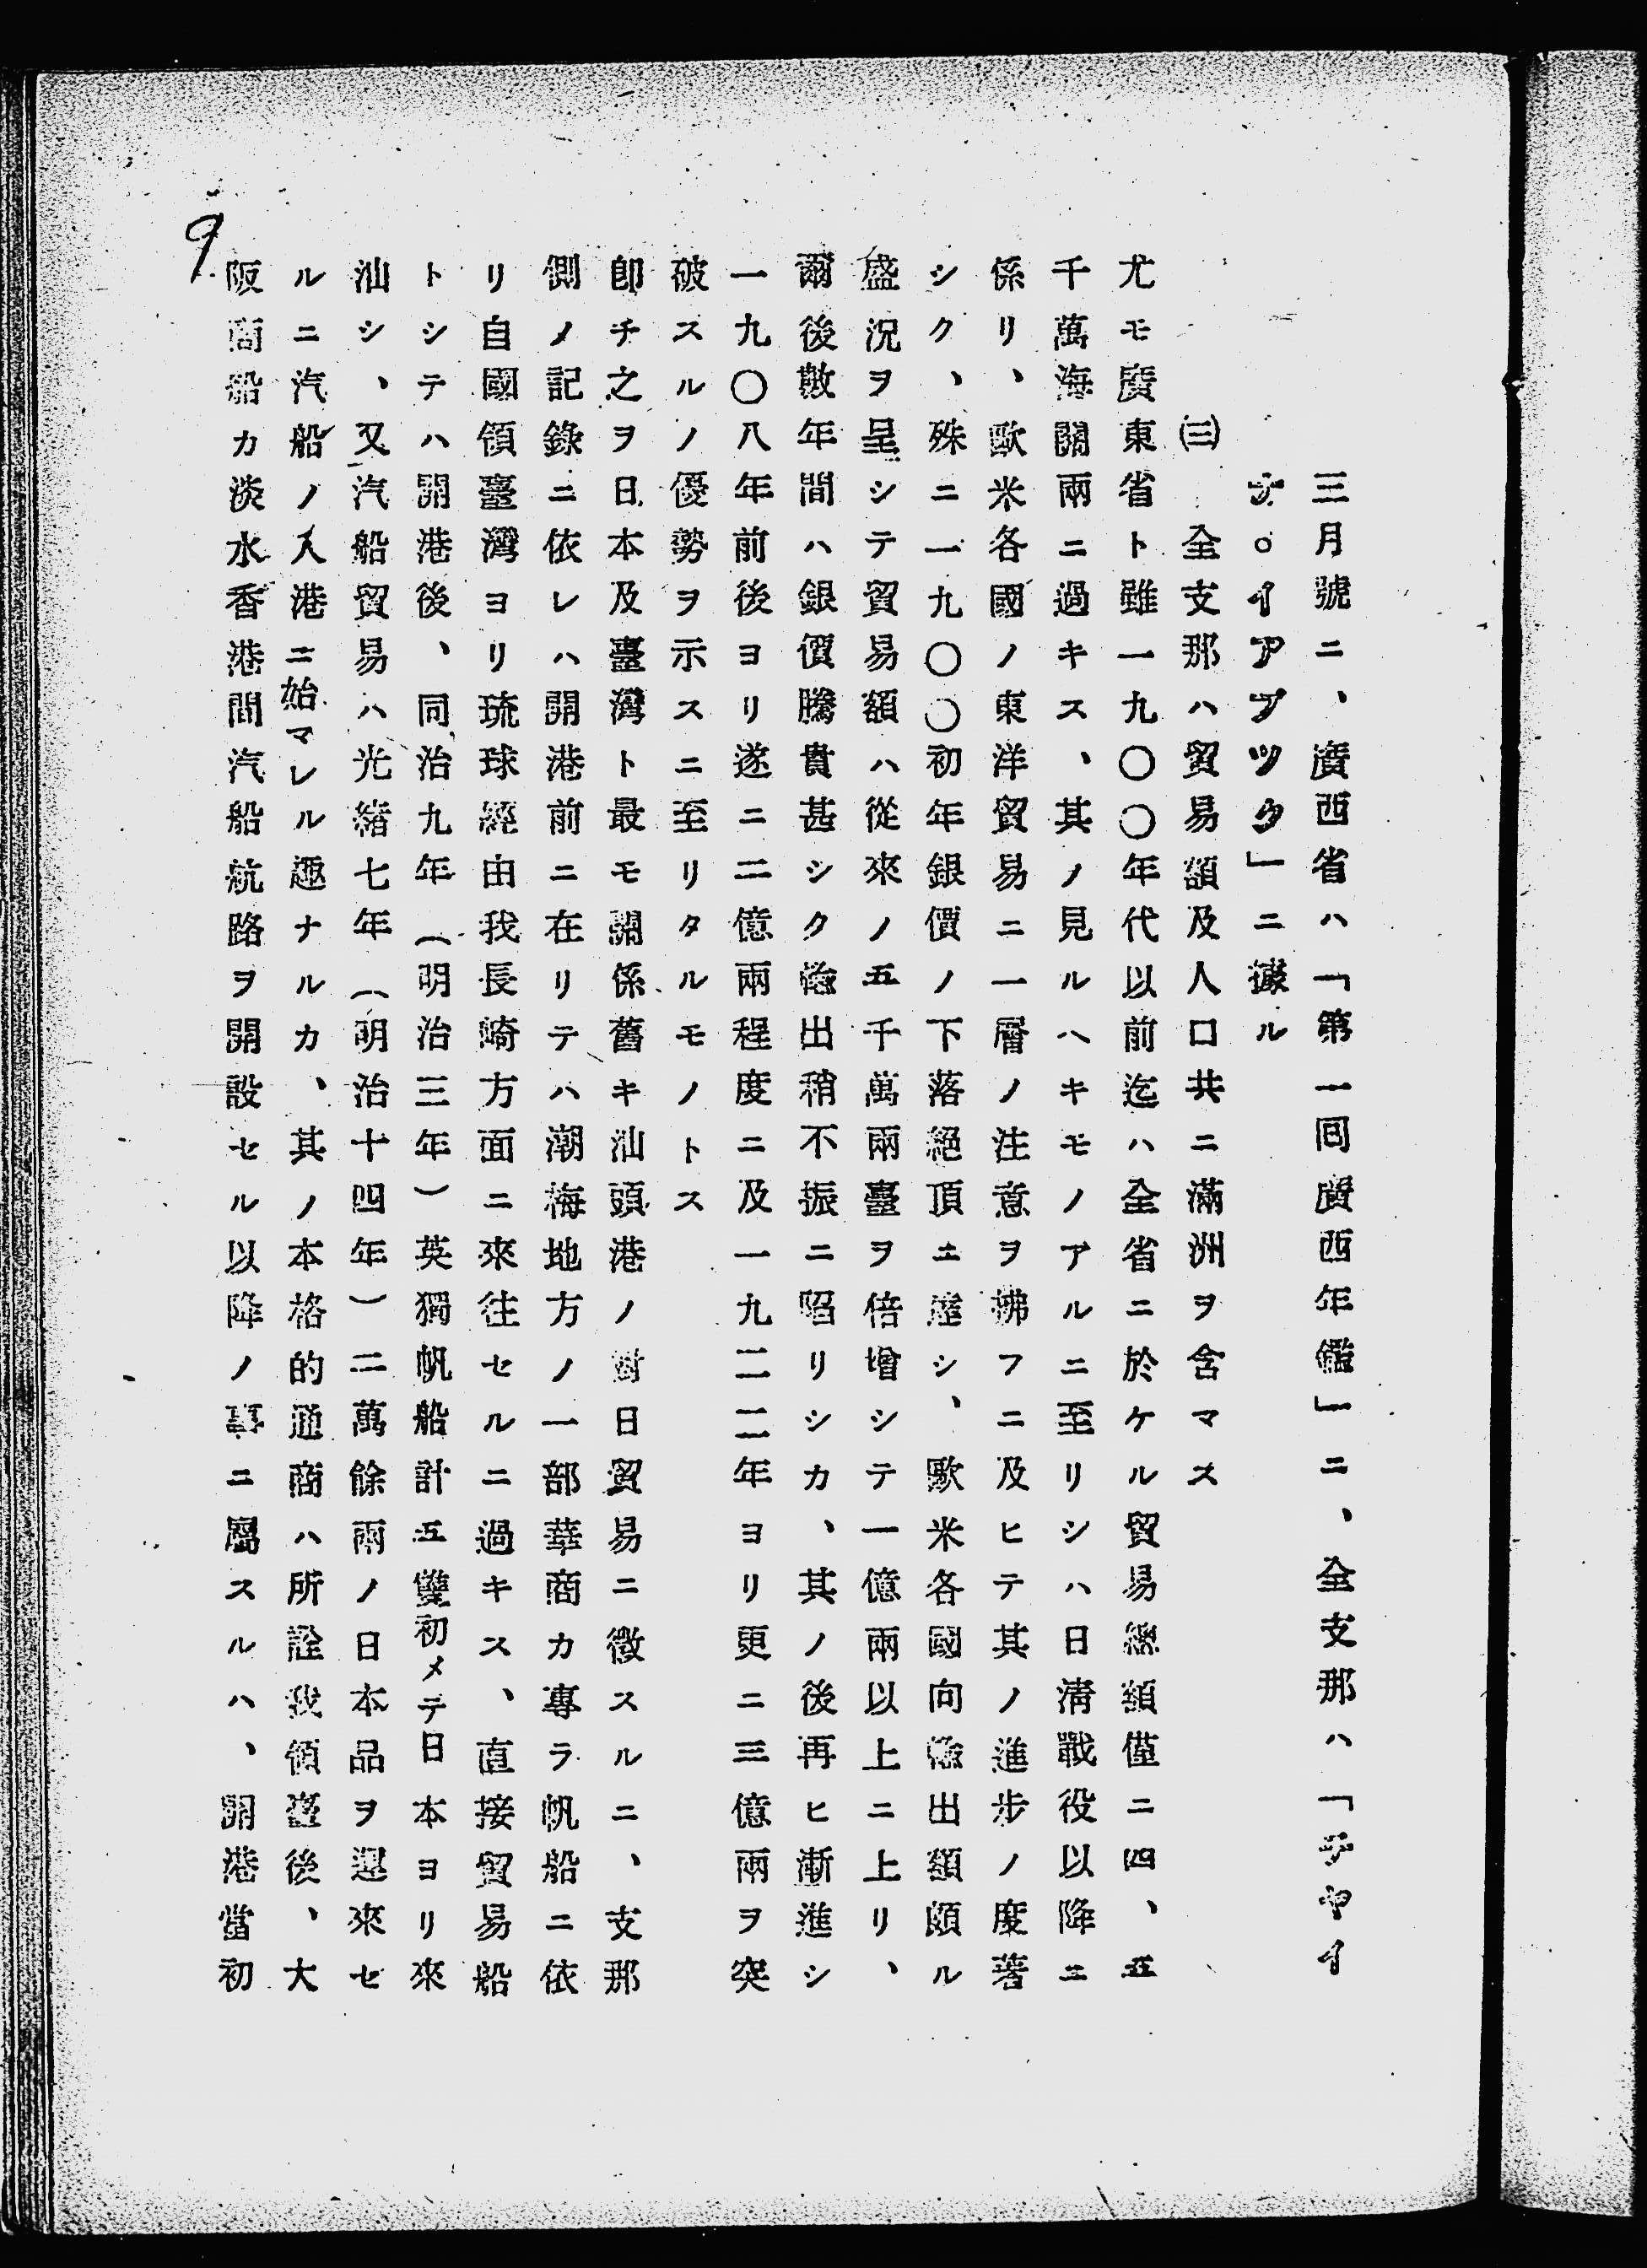 三月號ニ、廣西省ハ「第一回廣西年鑑」ニ、全支那ハ「チヤイ
ナ。イアブツク」ニ據ル
㈢　全支那ハ貿易額及人口共ニ滿洲ヲ含マス
尤モ廣東省ト雖一九〇〇年代以前迄ハ全省ニ於ケル貿易總額僅ニ四、五
千萬海關兩ニ過キス、其ノ見ルヘキモノアルニ至リシハ日淸戰役以降ニ
係リ、歐米各國ノ東洋貿易ニ一層ノ注意ヲ拂フニ及ヒテ其ノ進步ノ度著
シク、殊ニ一九〇〇初年銀價ノ下落絕頂ニ達シ、歐米各國向輸出額頗ル
盛況ヲ呈シテ貿易額ハ從來ノ五千萬兩臺ヲ倍增シテ一億兩以上ニ上リ、
爾後數年間ハ銀價騰貴甚シク輸出稍不振ニ陷リシカ、其ノ後再ヒ漸進シ
一九〇八年前後ヨリ遂ニ二億兩程度ニ及一九二二年ヨリ更ニ三億兩ヲ突
破スルノ優勢ヲ示スニ至リタルモノトス
卽チ之ヲ日本及臺灣ト最モ關係舊キ汕頭港ノ對日貿易ニ徵スルニ、支那
側ノ記錄ニ依レハ開港前ニ在リテハ潮梅地方ノ一部華商カ專ラ帆船ニ依
リ自國領臺灣ヨリ琉球經由我長崎方面ニ來往セルニ過キス、直接貿易船
トシテハ開港後、同治九年（明治三年）英獨帆船計五雙初メテ日本ヨリ來
汕シ、又汽船貿易ハ光緒七年（明治十四年）二萬餘兩ノ日本品ヲ運來セ
ルニ汽船ノ入港ニ始マレル趣ナルカ、其ノ本格的通商ハ所詮我領臺後、大
阪商船カ淡水香港間汽船航路ヲ開設セル以降ノ事ニ屬スルハ、開港當初
9